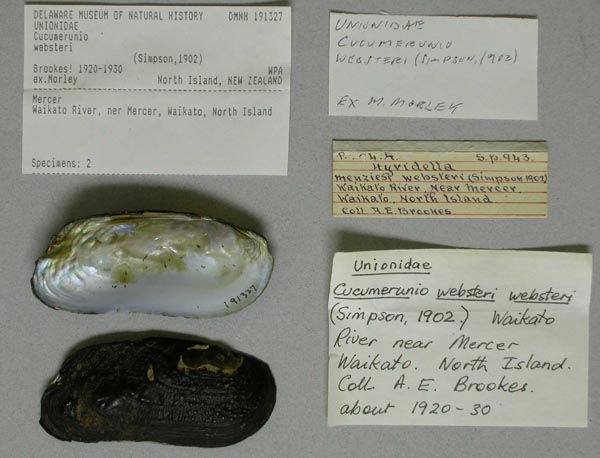 DELAWARE MUSEUM OF NATURAL HISTORY DMNH 191327
UNIONIDAE
Cucumerunio
websteri
(Simpson,1902)
Brookes! 1920-1930 WPA
ex.Morley North Island, NEW ZEALAND
Mercer
Waikato River, ner Mercer, Waikato, North Island
Specimens: 2
UNIONIDAE
CUCUMERUNIO
WEBSTERI (SIMPSON, 1902)
EX M. MORLEY
S.p. 943.
Hyridella
menziesi websteri (Simpson 1902)
Waikato River, Near Mercer.
Waikato, North Island
Coll. A.E. Brookes.
191327
Unionidae
Cucumerunio websteri websteri
(Simpson, 1902.) Waikato
River near Mercer
Waikato. North Island.
Coll. A. E. Brookes.
about 1920-30